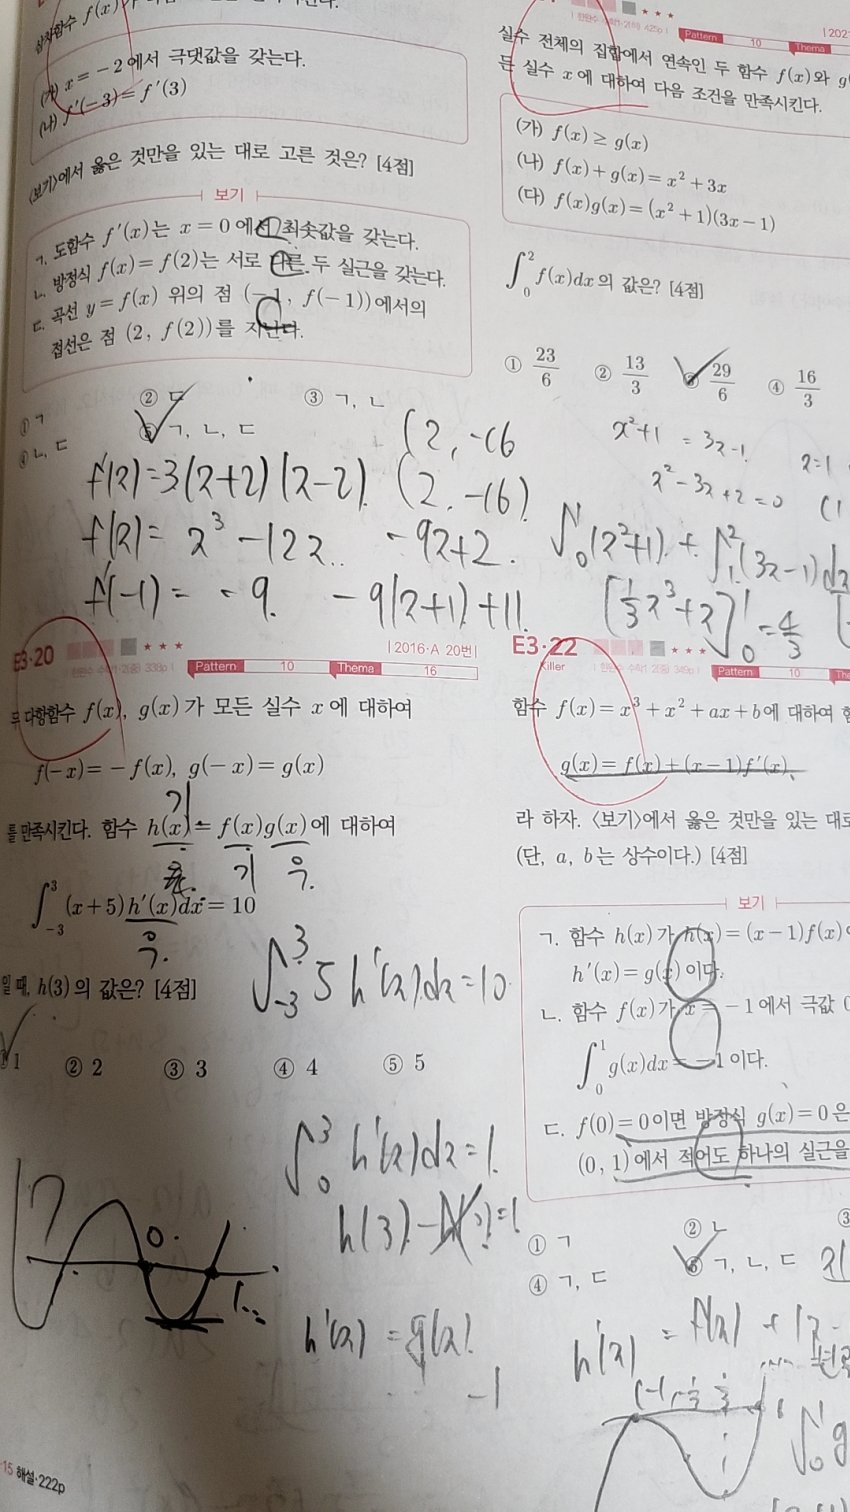 삼차함수 f(x)가
(가) x = −2에서 극댓값을 갖는다.
(나) f′(−3) = f′(3)
<보기>에서 옳은 것만을 있는 대로 고른 것은? [4점]
보기
ㄱ. 도함수 f′(x)는 x = 0에서 최솟값을 갖는다.
ㄴ. 방정식 f(x) = f(2)는 서로 다른 두 실근을 갖는다.
ㄷ. 곡선 y = f(x) 위의 점 (−1, f(−1))에서의
접선은 점 (2, f(2))를 지난다.
① ㄱ
② ㄷ
③ ㄱ, ㄴ
④ ㄴ, ㄷ
⑤ ㄱ, ㄴ, ㄷ
(2, −16
f′(x) = 3(x+2)(x−2). (2, −16).
f(x) = x³ − 12x.. −9x+2.
f′(−1) = −9. −9(x+1)+11.
E3·20
★★★
| 2016·A 20번 |
한완수 수학Ⅰ·2(중) 338p |
Pattern 10 Thema 16
두 다항함수 f(x), g(x)가 모든 실수 x에 대하여
f(−x) = −f(x), g(−x) = g(x)
를 만족시킨다. 함수 h(x) = f(x)g(x)에 대하여
기
기 우.
∫₋₃³ (x+5)h′(x)dx = 10
우.
∫₋₃³ 5h′(x)dx = 10
일 때, h(3)의 값은? [4점]
① 1
② 2
③ 3
④ 4
⑤ 5
∫₀³ h′(x)dx = 1.
h(3)
= 1
0.
h′(x) = g(x).
−1
15 해설·222p
★★★
| 한완수 수학2(하) 425p |
Pattern 10 Thema
| 202
실수 전체의 집합에서 연속인 두 함수 f(x)와 g(
든 실수 x에 대하여 다음 조건을 만족시킨다.
(가) f(x) ≥ g(x)
(나) f(x) + g(x) = x² + 3x
(다) f(x)g(x) = (x² + 1)(3x − 1)
∫₀² f(x)dx의 값은? [4점]
① 23/6
② 13/3
③ 29/6
④ 16/3
x²+1 = 3x−1.
x² − 3x + 2 = 0
x = 1
(1
∫₀¹ (x²+1) + ∫₁² (3x−1)dx
[1/3 x³ + x]₀¹ = 4/3
E3·22
Killer
★★★
| 한완수 수학Ⅰ·2(중) 349p |
Pattern 10 The
함수 f(x) = x³ + x² + ax + b에 대하여 함
g(x) = f(x) + (x − 1)f′(x)
라 하자. <보기>에서 옳은 것만을 있는 대로
(단, a, b는 상수이다.) [4점]
보기
ㄱ. 함수 h(x)가 h(x) = (x − 1)f(x)이
h′(x) = g(x)이다.
ㄴ. 함수 f(x)가 x = −1에서 극값 0
∫₀¹ g(x)dx = −1이다.
ㄷ. f(0) = 0이면 방정식 g(x) = 0은
(0, 1)에서 적어도 하나의 실근을
① ㄱ
② ㄴ
③
④ ㄱ, ㄷ
⑤ ㄱ, ㄴ, ㄷ
h′(x) = f(x) + (x −
∫₀¹ g